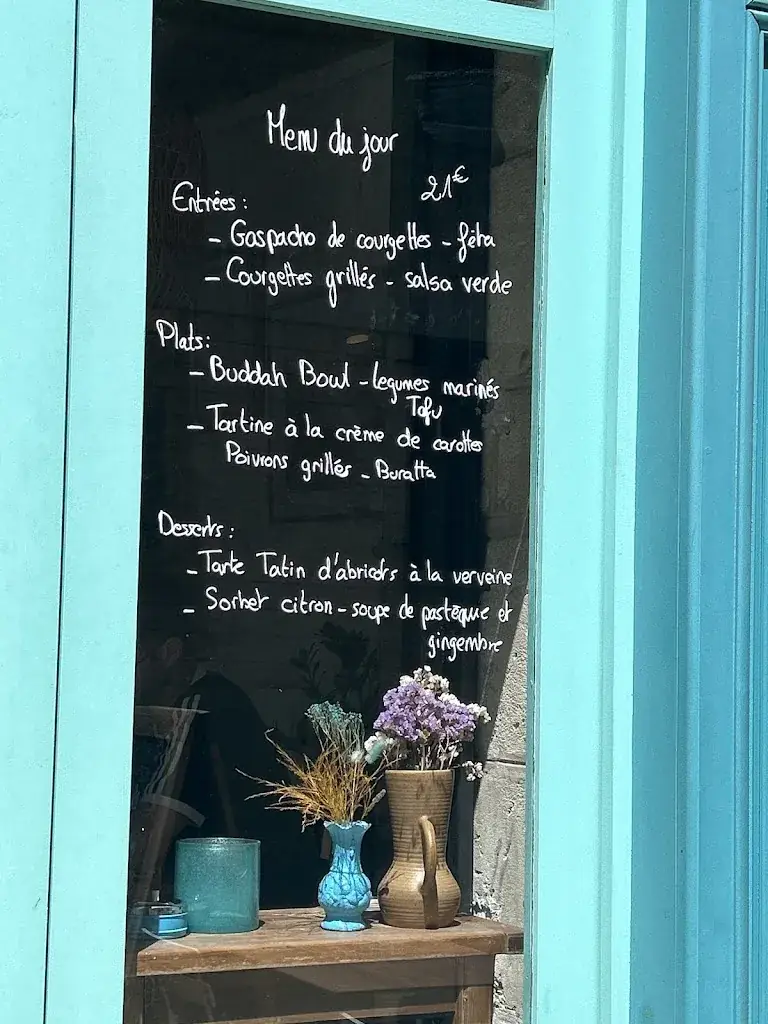 Menu du jour
21€
Entrées :
- Gaspacho de courgettes - féta
- Courgettes grillés - salsa verde
Plats :
- Buddah Bowl - legumes marinés
Tofu
- Tartine à la crème de carottes
Poivrons grillés - Buratta
Desserts :
- Tarte Tatin d'abricots à la verveine
- Sorbet citron - soupe de pastèque et
gingembre